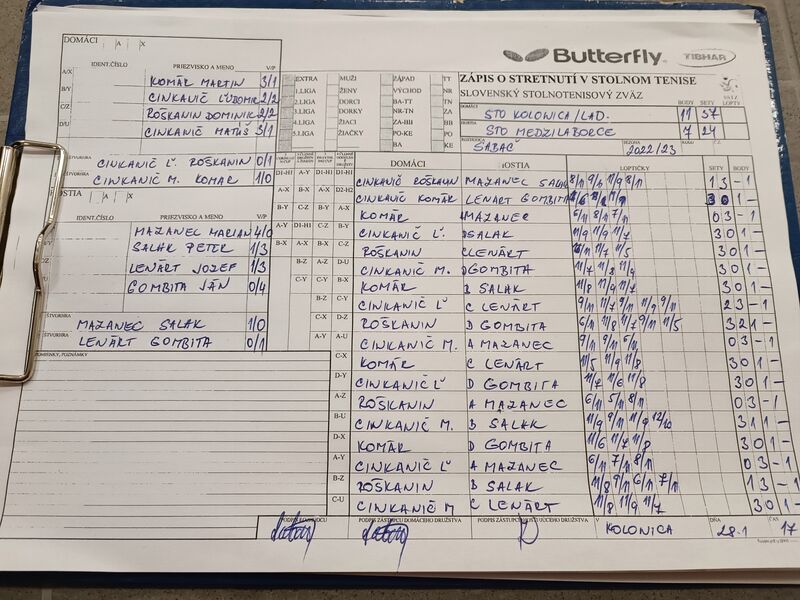 DOMÁCI A X
IDENT.ČÍSLO PRIEZVISKO A MENO V/P
A/X KOMÁR MARTIN 3/1
B/Y CINKANIČ ĽUBOMÍR 2/2
C/Z ROŠKANIN DOMINIK 2/2
D/U CINKANIČ MATÚŠ 3/1
CINKANIČ Ľ. ROŠKANIN 0/1
CINKANIČ M. KOMÁR 1/0
HOSTIA A X
IDENT.ČÍSLO PRIEZVISKO A MENO V/P
MAZANEC MARIAN 4/0
SALAK PETER 1/3
LENÁRT JOZEF 1/3
GOMBITA JÁN 0/4
MAZANEC SALAK 1/0
LENÁRT GOMBITA 0/1
Butterfly TIBHAR
ZÁPIS O STRETNUTÍ V STOLNOM TENISE
SLOVENSKÝ STOLNOTENISOVÝ ZVÄZ
EXTRA MUŽI ZÁPAD TT
1.LIGA ŽENY VÝCHOD NR
2.LIGA DORCI BA-TT TN
3.LIGA DORKY NR-TN ZA
4.LIGA ŽIACI ZA-BB BB
5.LIGA ŽIAČKY PO-KE PO
BA KE
DOMÁCI STO KOLONICA/LAD. BODY 11 SETY 37
STO MEDZILABORCE 7 24
SABAČ SEZÓNA 2022/23
DOMÁCI HOSTIA LOPTIČKY SETY BODY
CINKANIČ ROŠKANIN MAZANEC SALAK 8/11 9/11 11/9 8/11 1 3 - 1
CINKANIČ KOMÁR LENÁRT GOMBITA 3 0 1
KOMÁR MAZANEC 0 3 - 1
CINKANIČ Ľ. SALAK 11/9 11/9 11/7 3 0 1 -
ROŠKANIN C LENÁRT 11/7 11/5 3 0 1 -
CINKANIČ M. D GOMBITA 11/7 11/8 11/9 3 0 1 -
KOMÁR B SALAK 11/8 11/9 11/7 3 0 1 -
CINKANIČ Ľ C LENÁRT 9/11 11/7 9/11 11/9 9/11 2 3 - 1
ROŠKANIN D GOMBITA 6/11 11/8 11/7 9/11 11/5 3 2 1 -
CINKANIČ M. A MAZANEC 9/11 9/11 0 3 - 1
KOMÁR C LENÁRT 11/5 11/9 11/8 3 0 1 -
CINKANIČ Ľ D GOMBITA 11/7 11/6 11/8 3 0 1 -
ROŠKANIN A MAZANEC 6/11 5/11 8/11 0 3 - 1
CINKANIČ M. B SALAK 11/9 9/11 11/9 12/10 3 1 1 -
KOMÁR D GOMBITA 11/6 11/7 11/8 3 0 1 -
CINKANIČ Ľ A MAZANEC 6/11 7/11 8/11 0 3 - 1
ROŠKANIN B SALAK 11/8 9/11 6/11 7/11 1 3 - 1
CINKANIČ M C LENÁRT 11/8 11/9 11/7 3 0 1 -
PODPIS ZÁSTUPCU DOMÁCEHO DRUŽSTVA V KOLONICA DŇA 28.1 ČAS 17